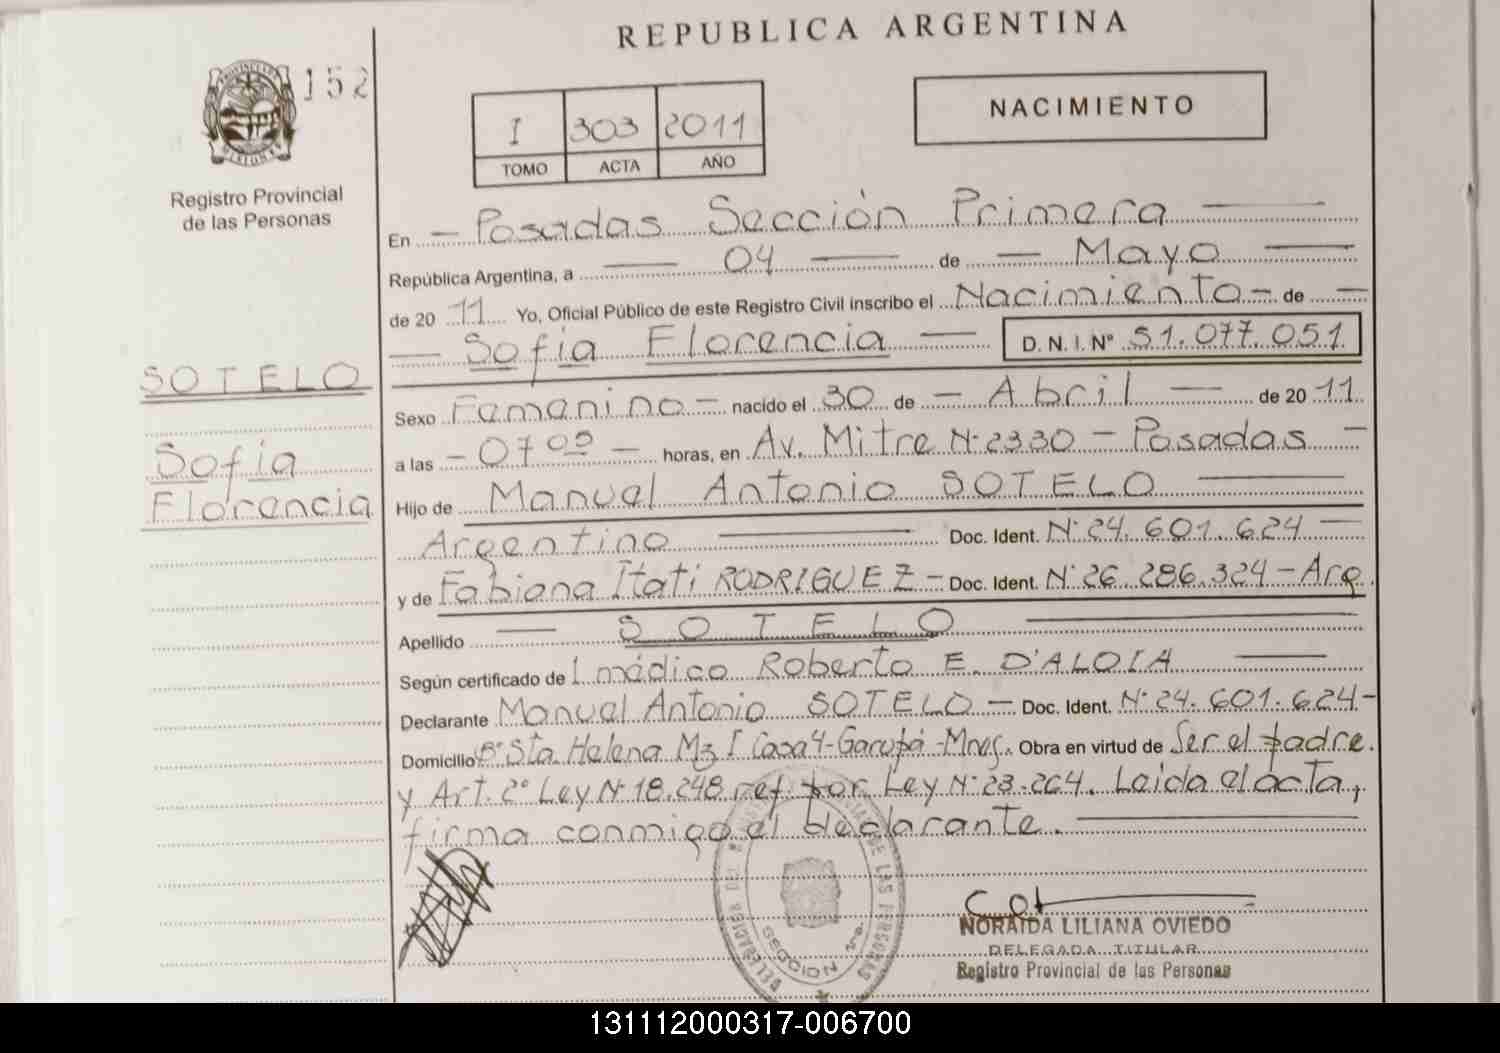 REPUBLICA ARGENTINA
152
I 303 2011
TOMO ACTA AÑO
NACIMIENTO
Registro Provincial
de las Personas
En - Posadas Sección Primera
República Argentina, a 04 de Mayo
de 2011 Yo, Oficial Público de este Registro Civil inscribo el Nacimiento - de -
Sofía Florencia D. N. I. Nº 51.077.051
SOTELO
Sofía
Florencia
Sexo Femenino - nacido el 30 de - Abril - de 2011
a las - 07 05 - horas, en Av. Mitre Nº 2330 - Posadas -
Hijo de Manuel Antonio SOTELO
Argentino Doc. Ident. Nº 24.601.624 -
y de Fabiana Itatí RODRIGUEZ - Doc. Ident. Nº 26.286.324 - Arg.
Apellido SOTELO
Según certificado de l médico Roberto E. D'ALOIA
Declarante Manuel Antonio SOTELO - Doc. Ident. Nº 24.601.624 -
Domicilio Bº Sta. Helena Mz I Casa 4 - Garupá - Mnes. Obra en virtud de Ser el padre.
y Art. 2º Ley Nº 18.248 ref. por Ley Nº 23.264. Leida el acta,
firma conmigo el declarante.
SECCION 1ra.
NORAIDA LILIANA OVIEDO
DELEGADA TITULAR
Registro Provincial de las Personas
131112000317-006700